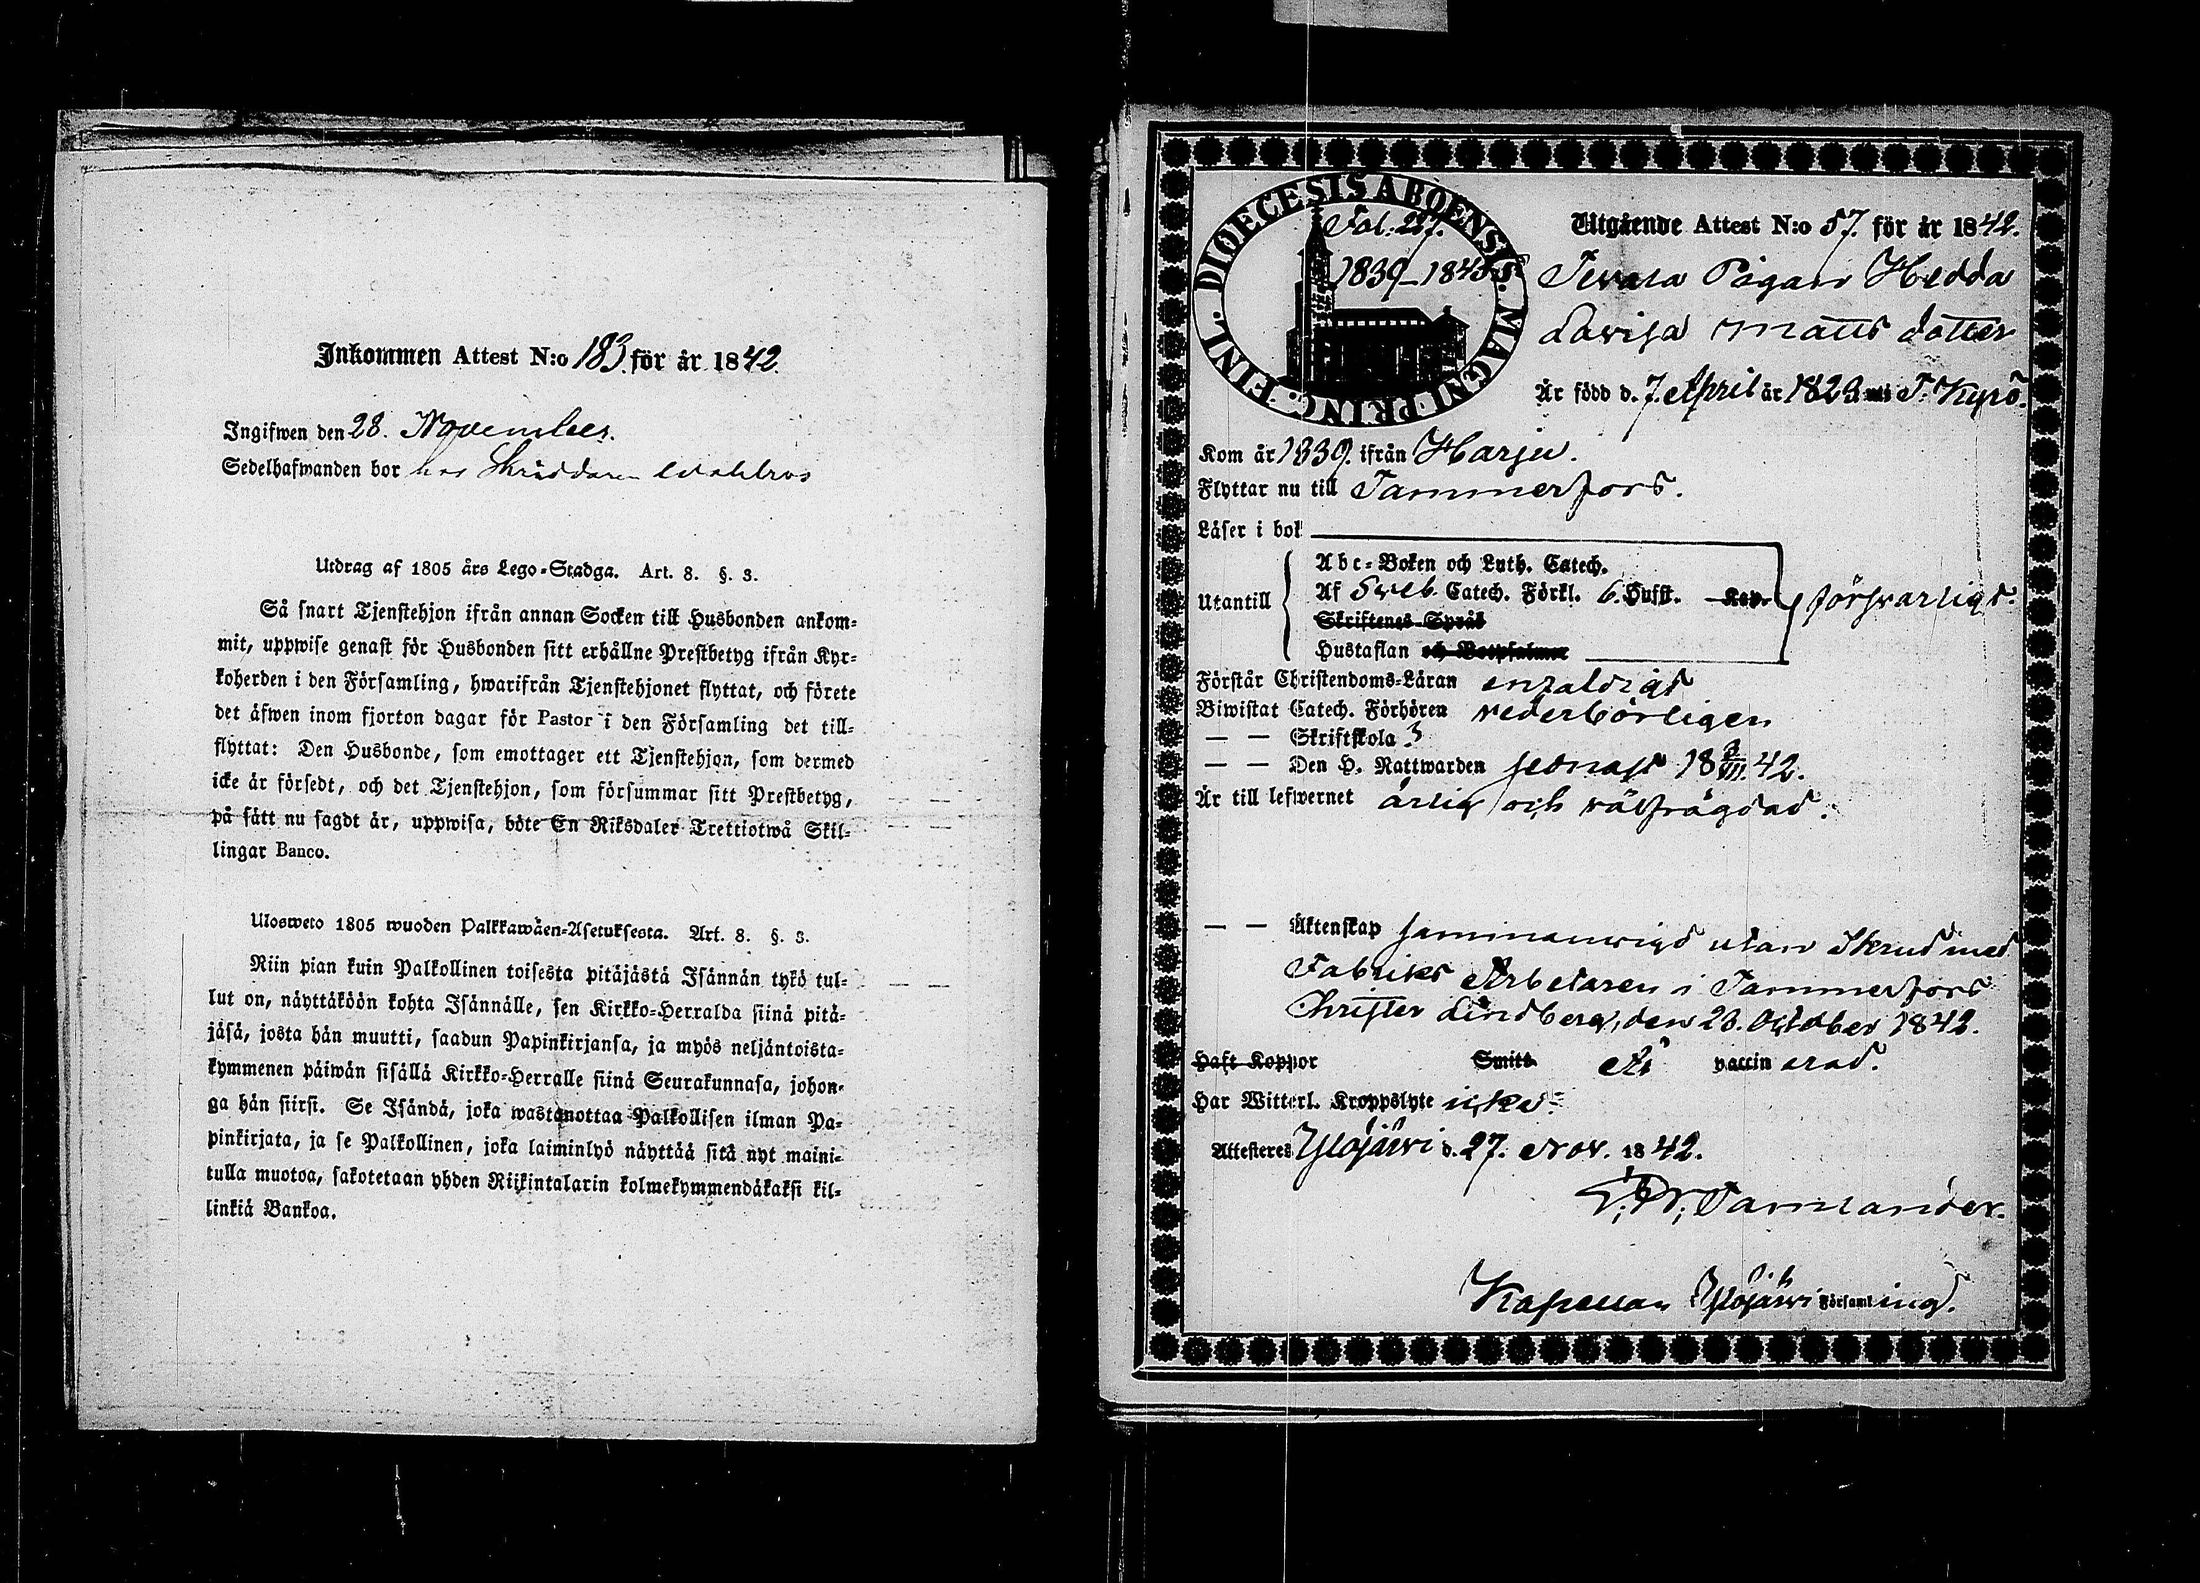 Inkommen Attest N:o 183. för år 1842.
Ingifwen den 28. November.
Sedelhafwanden bor hos Skräddaren Wahlroos
Utdrag af 1805 års Lego-Stadga. Art. 8. §. 3.
Så snart Tjenstehjon ifrån annan Socken till Husbonden ankom-
mit, uppwise genast för Husbonden sitt erhållne Prestbetyg ifrån Kyr-
koherden i den Församling, hwarifrån Tjenstehjonet flyttat, och förete
det äfwen inom fjorton dagar för Pastor i den Församling det till-
flyttat: Den Husbonde, som emottager ett Tjenstehjon, som dermed
icke är försedt, och det Tjenstehjon, som försummar sitt Prestbetyg,
på sätt nu sagdt är, uppwisa, böte En Riksdaler Trettiotwå Skil-
lingar Banco.
Ulosweto 1805 wuoden Palkkawäen-Asetuksesta. Art. 8. §. 3.
Niin pian kuin Palkollinen toisesta pitäjästä Isännän tykö tul-
lut on, näyttäköön kohta Isännälle, sen Kirkko-Herralda siinä pitä-
jäsä, josta hän muutti, saadun Papinkirjansa, ja myös neljäntoista-
kymmenen päiwän sisällä Kirkko-Herralle siinä Seurakunnasa, johon-
ga hän siirsi. Se Isändä, joka wastanottaa Palkollisen ilman Pa-
pinkirjata, ja se Palkollinen, joka laiminlyö näyttää sitä nyt maini-
tulla muotoa, sakotetaan yhden Riikintalarin kolmekymmendäkaksi kil-
linkiä Bankoa.
DIOECESIS ABOENSIS. MAGNI PRINC. FINL.
Fol: 227.
1839–1845
Utgående Attest N:o 57. för år 1842.
Pigan Hedda
Lovisa Matts dotter
Är född d. 7. April år 1823 uti T. Kyrö.
Kom år 1839. ifrån Harju.
Flyttar nu till Tammerfors.
Läser i bok
Utantill
Abc-Boken och Luth. Catech.
Af Sveb. Catech. Förkl. 6. Hufst. Kap.
Skriftenes Språk
Hustaflan och Botpsalmer
försvarligt.
Förstår Christendoms-Läran enfaldigt
Biwistat Catech. Förhören vederbörligen
— — Skriftskola
— — Den H. Nattwarden sednast 18 3/VII 42.
Är till lefwernet ärlig och välfrägdad.
— — Äktenskap sammanvigd utan Skrud med
Fabriks Arbetaren i Tammerfors
Christer Lindberg, den 23. October 1842.
Haft Koppor Smitt Är vaccinerad.
Har Witterl. Kroppslyte icke.
Attesteres Ylöjärvi d. 27. Nov. 1842.
Tamlander.
Kapellan Ylöjärvi Församling.